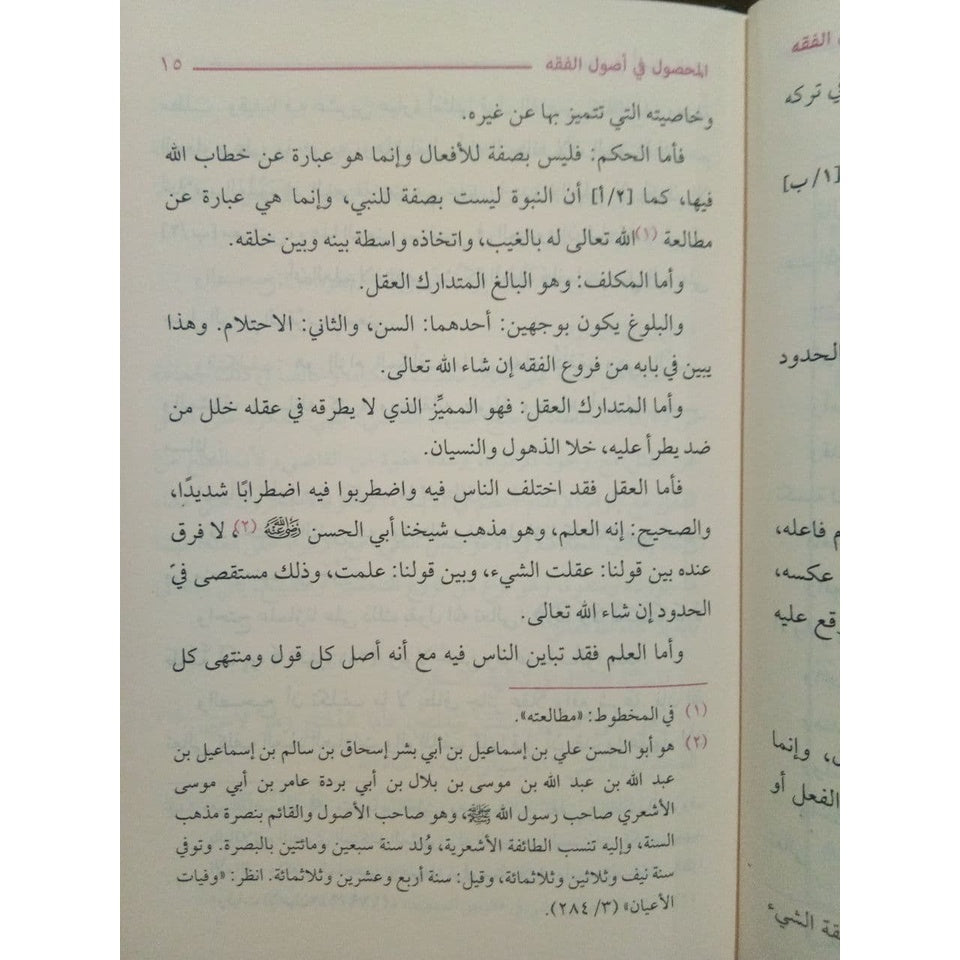 المحصول في أصول الفقه ١٥
وخاصيته التي تتميز بها عن غيره.
فأما الحكم: فليس بصفة للأفعال وإنما هو عبارة عن خطاب الله
فيها، كما [٢/أ] أن النبوة ليست بصفة للنبي، وإنما هي عبارة عن
مطالعة (١) الله تعالى له بالغيب، واتخاذه واسطة بينه وبين خلقه.
وأما المكلف: وهو البالغ المتدارك العقل.
والبلوغ يكون بوجهين: أحدهما: السن، والثاني: الاحتلام. وهذا
يبين في بابه من فروع الفقه إن شاء الله تعالى.
وأما المتدارك العقل: فهو المميِّز الذي لا يطرقه في عقله خلل من
ضد يطرأ عليه، خلا الذهول والنسيان.
فأما العقل فقد اختلف الناس فيه واضطربوا فيه اضطرابًا شديدًا،
والصحيح: إنه العلم، وهو مذهب شيخنا أبي الحسن رضي الله عنه (٢)، لا فرق
عنده بين قولنا: عقلت الشيء، وبين قولنا: علمت، وذلك مستقصى في
الحدود إن شاء الله تعالى.
وأما العلم فقد تباين الناس فيه مع أنه أصل كل قول ومنتهى كل
(١) في المخطوط: «مطالعته».
(٢) هو أبو الحسن علي بن إسماعيل بن أبي بشر إسحاق بن سالم بن إسماعيل بن
عبد الله بن عبد الله بن موسى بن بلال بن أبي بردة عامر بن أبي موسى
الأشعري صاحب رسول الله ﷺ، وهو صاحب الأصول والقائم بنصرة مذهب
السنة، وإليه تنسب الطائفة الأشعرية، وُلد سنة سبعين ومائتين بالبصرة. وتوفي
سنة نيف وثلاثين وثلاثمائة، وقيل: سنة أربع وعشرين وثلاثمائة. انظر: «وفيات
الأعيان» (٣/ ٢٨٤).
الفقه
تركه
[١/ب]
الحدود
فاعله،
عكسه،
عليه
وإنما
الفعل أو
الشيء